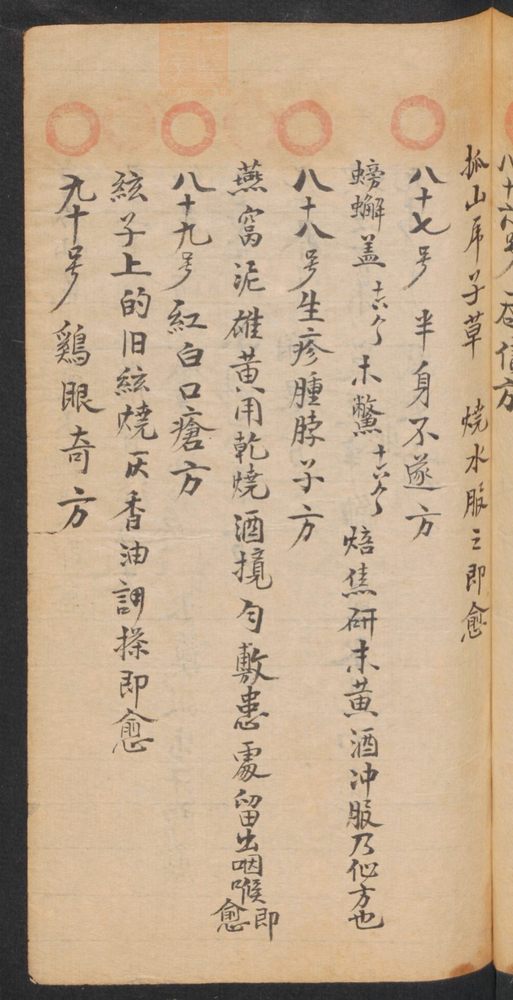 八十六号
孤山屌子草 燒水服之即愈
八十七号 半身不遂方
螃蠏盖十六个 木鱉十六个 焙焦研末黄酒冲服乃仙方也
八十八号生疹腫脖子方
燕窩泥雄黄用乾燒酒攪匀敷患處留出咽喉即愈
八十九号紅白口瘡方
絃子上的旧絃燒灰香油調搽即愈
九十号鷄眼奇方